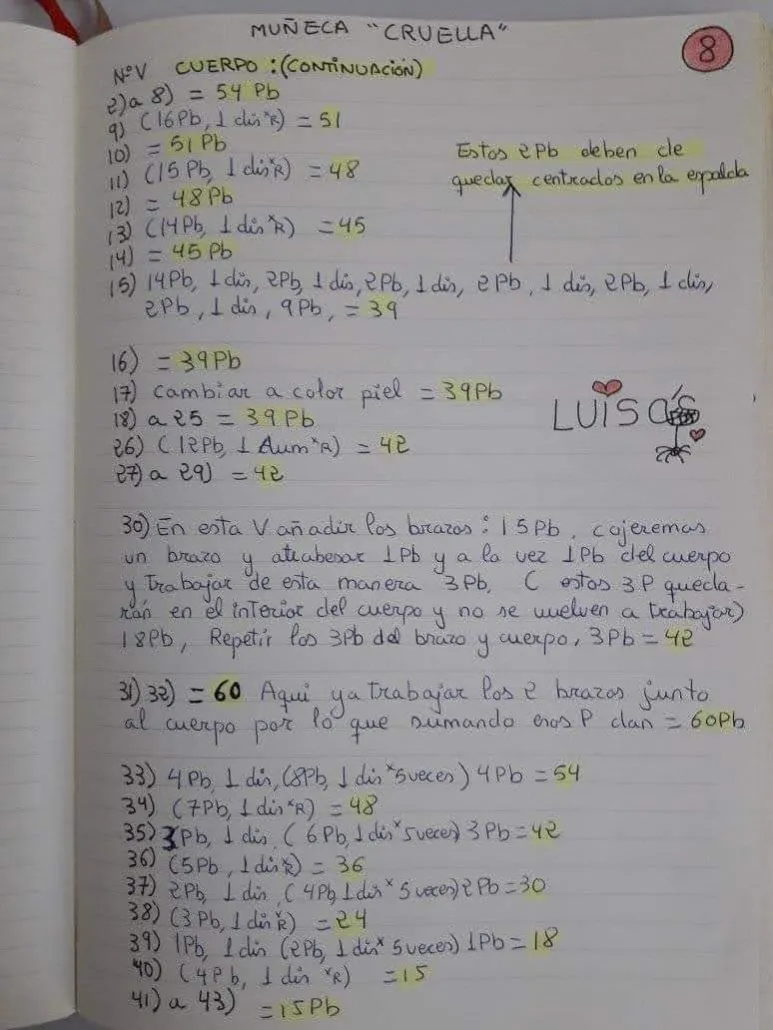 MUÑECA "CRUELLA"
8
NºV CUERPO: (CONTINUACIÓN)
2) a 8) = 54 Pb
9) (16Pb, 1 dis *R) = 51
10) = 51 Pb
11) (15 Pb, 1 dis *R) = 48
12) = 48 Pb
13) (14Pb, 1 dis *R) = 45
14) = 45 Pb
Estos 2Pb deben de
quedar centrados en la espalda
15) 14Pb, 1 dis, 2Pb, 1 dis, 2Pb, 1 dis, 2Pb, 1 dis, 2Pb, 1 dis,
2Pb, 1 dis, 9Pb, = 39
16) = 39Pb
17) Cambiar a color piel = 39Pb
18) a 25 = 39Pb
26) (12Pb, 1 Aum *R) = 42
27) a 29) = 42
LUISA'S
30) En esta V añadir los brazos: 15Pb, cojeremos
un brazo y atrabesar 1Pb y a la vez 1Pb del cuerpo
y trabajar de esta manera 3Pb. ( estos 3P queda-
rán en el interior del cuerpo y no se vuelven a trabajar)
18Pb, Repetir los 3Pb del brazo y cuerpo, 3Pb = 42
31) 32) = 60 Aqui ya trabajar los 2 brazos junto
al cuerpo por lo que sumando esos P dan = 60Pb
33) 4Pb, 1 dis, (8Pb, 1 dis * 5 veces) 4Pb = 54
34) (7Pb, 1 dis *R) = 48
35) 3Pb, 1 dis, ( 6Pb, 1 dis * 5 veces) 3Pb = 42
36) (5Pb, 1 dis *R) = 36
37) 2Pb, 1 dis ( 4Pb, 1 dis * 5 veces) 2Pb = 30
38) (3Pb, 1 dis *R) = 24
39) 1Pb, 1 dis (2Pb, 1 dis * 5 veces) 1Pb = 18
40) (4Pb, 1 dis *R) = 15
41) a 43) = 15Pb